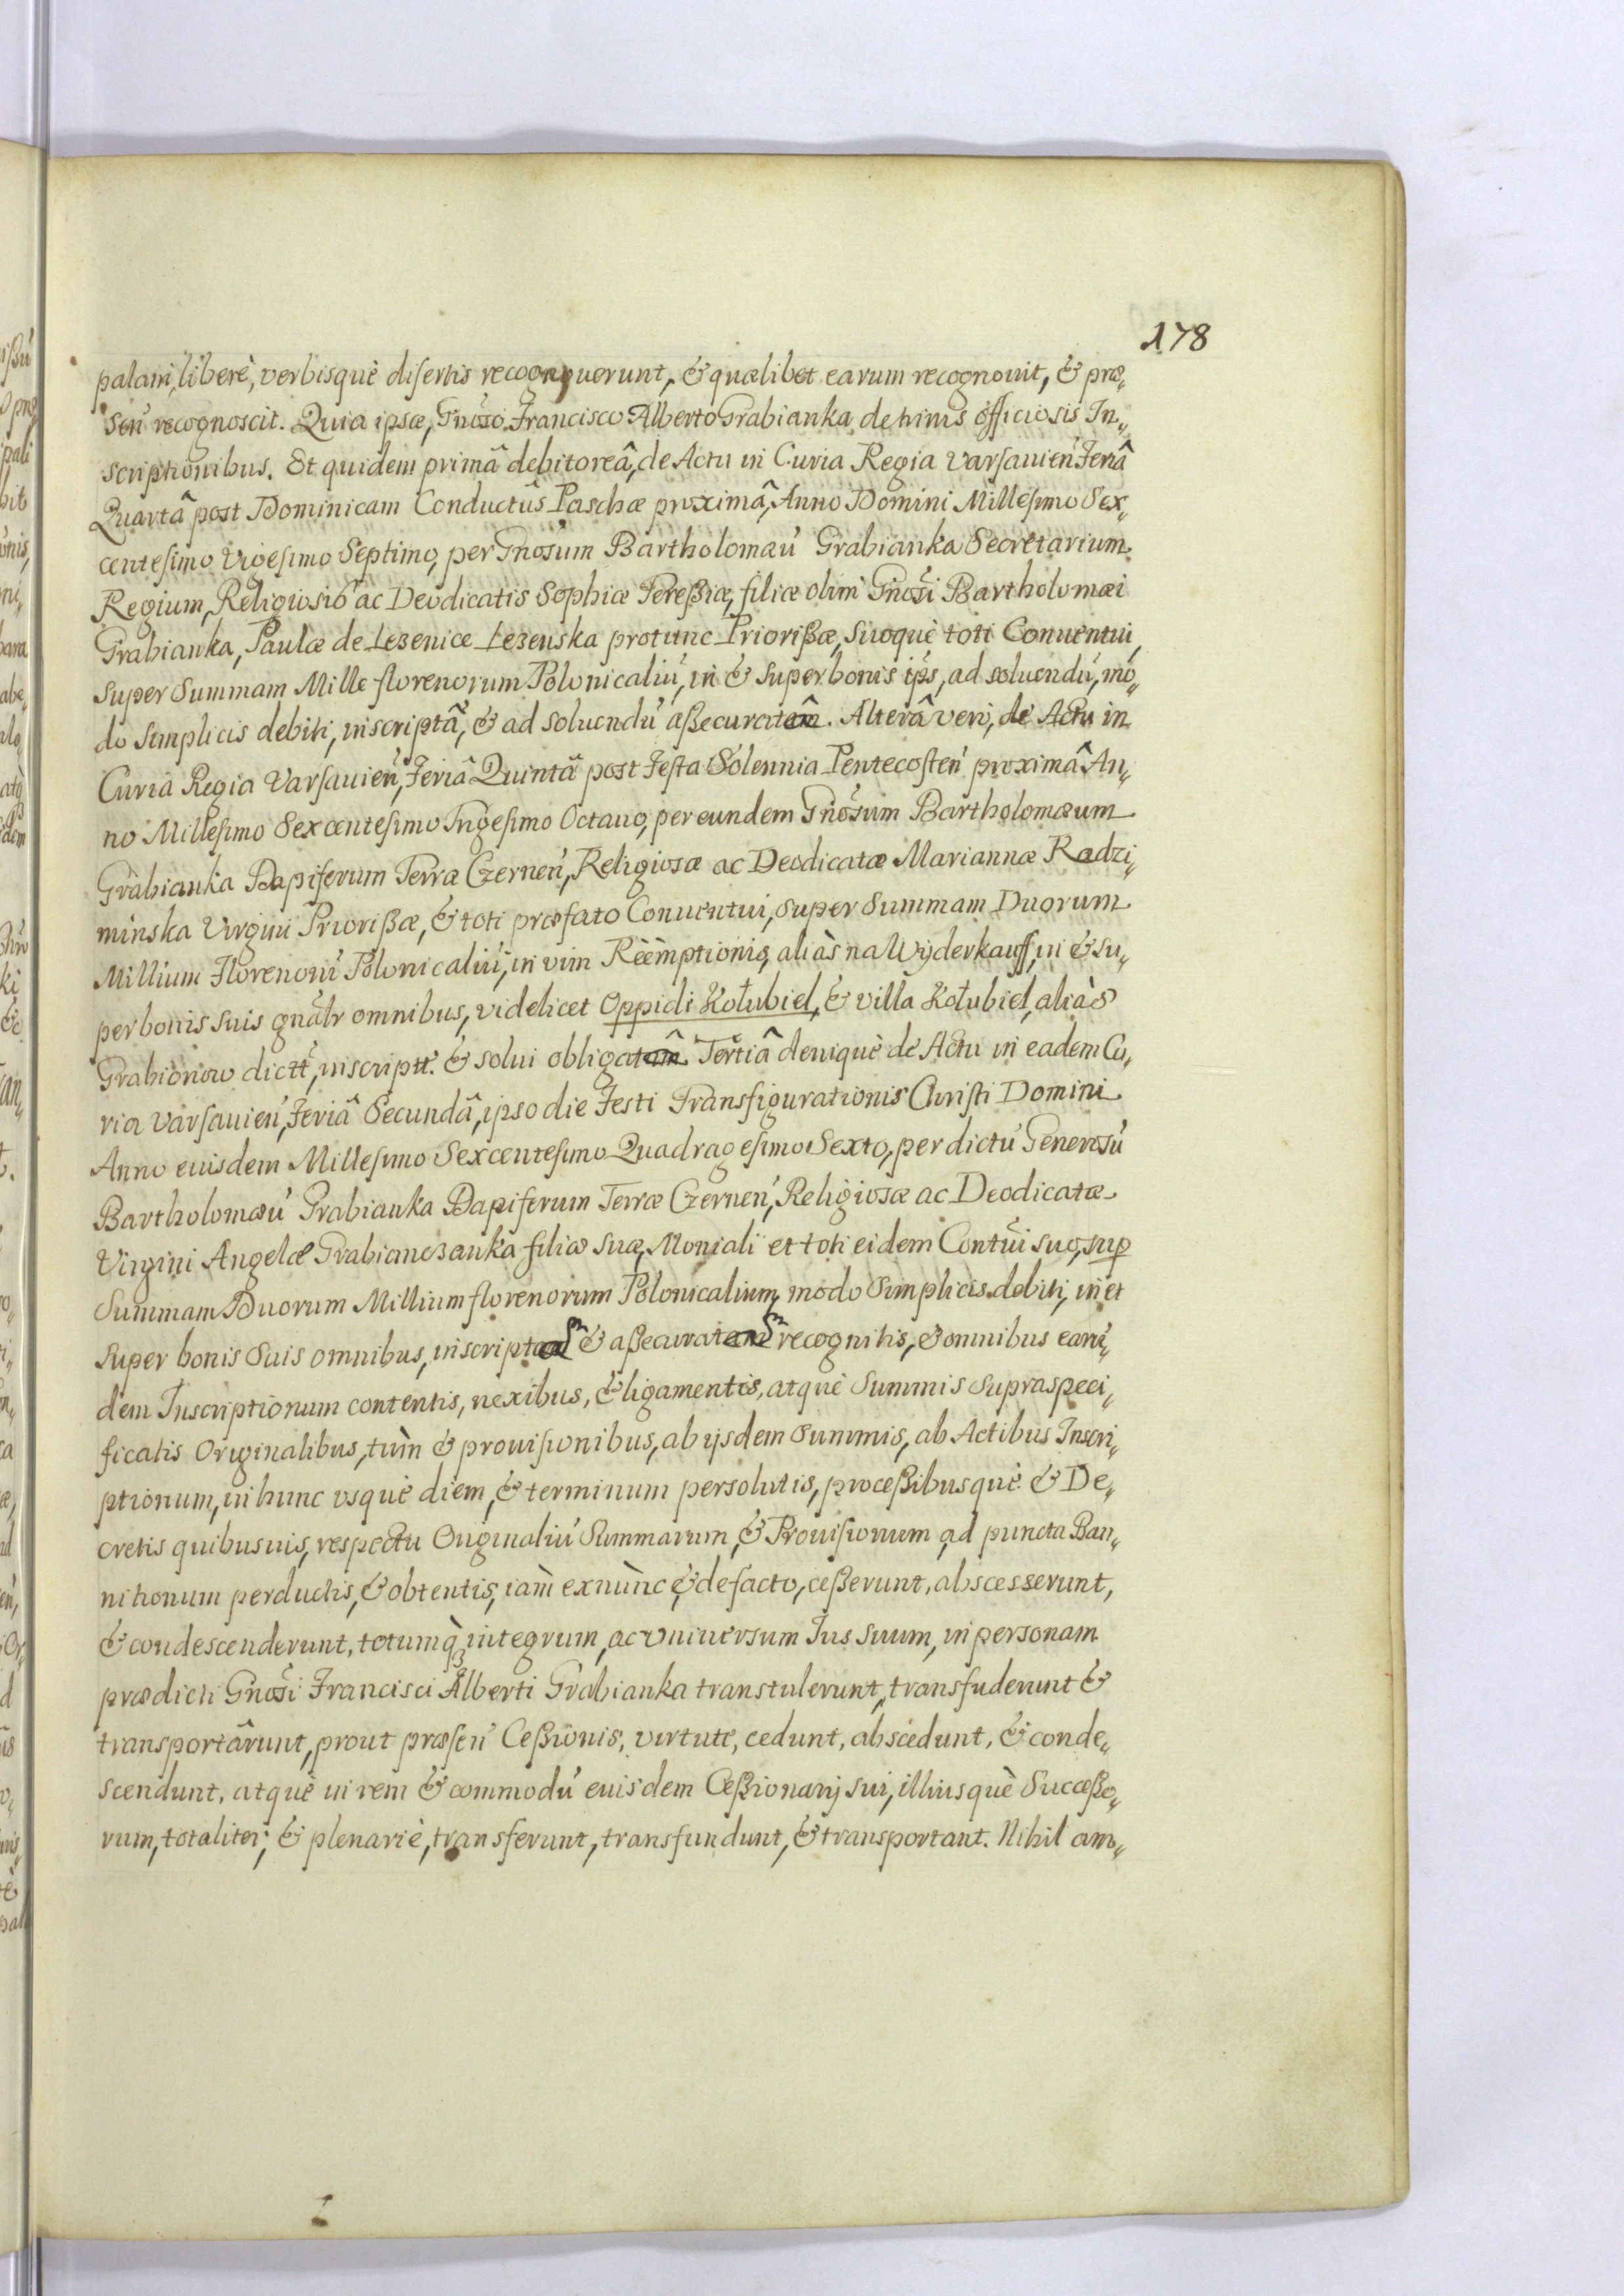 178
palam, liberè, verbisquè disertis recognouerunt, & quælibet earum recognouit, & præ„
sen̄ recognoscit. Quia ipsæ, Gnōso Francisco Alberto Grabianka de trinis officiosis In„
scriptionibus. Et quidem primâ debitoreâ, de Actu in Curia Regia Varsauien̄ Feriâ
Quartâ post Dominicam Conductûs Paschæ proximâ, Anno Domini Millesimo Sex„
centesimo Vigesimo Septimo, per Gnōsum Bartholomæū Grabianka Secretarium
Regium, Religiosis ac Deodicatis Sophiæ Pereßiæ, filiæ olim Gnōsi Bartholomæi
Grabianka, Paulæ de Lezenice Lezenska protunc Priorißæ, Suoquè toti Conuentui,
super Summam Mille florenorum Polonicaliū, in & super bonis ip̄s, ad soluendū, mo„
do Simplicis debiti, inscriptâ, & ad soluendū aßecuratâ. Alterâ verò, de Actu in
Curia Regia Varsauien̄, Feriâ Quintâ post Festa Solennia Pentecosten̄ proximâ An„
no Millesimo Sexcentesimo Trigesimo Octauo, per eundem Gnōsum Bartholomæum
Grabianka Dapiferum Terræ Czernen̄, Religiosæ ac Deodicatæ Mariannæ Radzi„
minska Virgini Priorißæ, & toti præfato Conuentui, super Summam Duorum
Millium Florenorū Polonicaliū, in vim Rèèmptionis, aliàs na Wÿderkauff, in & su„
per bonis suis gnālr omnibus, videlicet Oppidi Kołubiel, & villa Kołubiel, aliàs
Grabionow dictt̄, inscriptt. & solui obligatâ. Tertiâ deniquè de Actu in eadem Cu„
ria Varsauien̄, Feriâ Secundâ, ipso die Festi Transfigurationis Christi Domini
Anno euisdem Millesimo Sexcentesimo Quadragesimo Sexto, per dictū Generosū
Bartholomæū Grabianka Dapiferum Terræ Czernen̄, Religiosæ ac Deodicatæ
Virgini Angelæ Grabianczanka filiæ suæ, Moniali et toti eidem Contūi suo, sup
Summam Duorum Millium florenorum Polonicalium, modo Simplicis debiti, in et
super bonis Suis omnibus, inscript & aßecurat recognitis, & omnibus earū„
dem Inscriptionum contentis, nexibus, & ligamentis, atquè Summis supraspeci„
ficatis Originalibus, tùm & prouisionibus, ab ijsdem Summis, ab Actibus Inscri„
ptionum, in hunc vsquè diem, & terminum persolutis, proceßibusquè & De„
cretis quibusuis, respectu Originaliū Summarum, & Prouisionum, ad puncta Ban„
nitionum perductis, & obtentis, iam exnùnc & defacto, ceßerunt, abscesserunt,
& condescenderunt, totumq̀ꝫ integrum, ac vniuersum Ius suum, in personam
prædicti Gnōsi Francisci Alberti Grabianka transtulerunt, transfuderunt &
transportârunt, prout præsen̄ Ceßionis, virtute, cedunt, abscedunt, & conde„
scendunt, atquè in rem & commodū euisdem Ceßionarij sui, illiusquè Succeßo„
rum, totaliter, & plenariè, transferunt, transfundunt, & transportant. Nihil am„